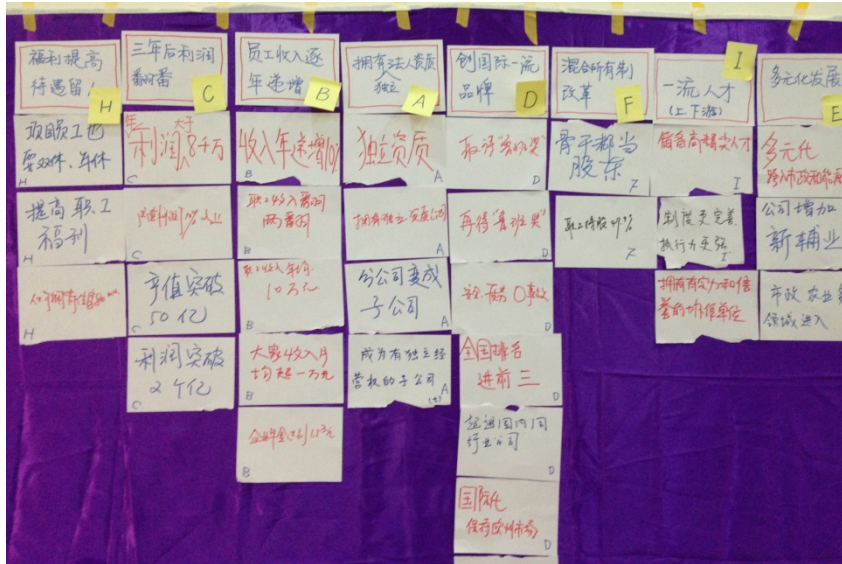 福利提高
待遇留人
H
项目员工也
要双休、年休
H
提高职工
福利
H
H
三年后利润
翻两番
C
利润大于8千万
C
C
产值突破
50亿
C
利润突破
2个亿
C
员工收入逐
年递增
B
收入年递增10%
B
职工收入翻
两番
B
职工收入年均
10万元
B
大家收入月
均超一万元
B
B
拥有法人资质
独立
A
独立资质
A
拥有独立资质公司
A
分公司变成
子公司
A
成为有独立经
营权的子公司
A
创国际一流
品牌
D
D
再得"鲁班奖"
D
D
全国排名
进前三
D
超过国内同
行业公司
D
国际化
D
混合所有制
改革
F
骨干都当
股东
F
职工持股49%
F
I
一流人才
(上、下游)
储备高精尖人才
I
制度更完善
执行力更强
I
拥有有实力和信
誉的协作单位
多元化发展
E
多元化
公司增加
新辅业
市政 农业
领域进入